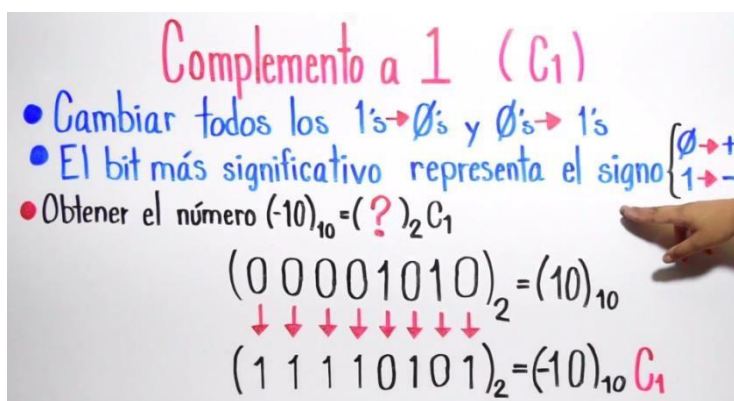 Complemento a 1 (C₁)
• Cambiar todos los 1's→Ø's y Ø's→ 1's
• El bit más significativo representa el signo { Ø→+
1→-
• Obtener el número (-10)₁₀=(?)₂C₁
(0 0 0 0 1 0 1 0)₂=(10)₁₀
↓ ↓ ↓ ↓ ↓ ↓ ↓ ↓
(1 1 1 1 0 1 0 1)₂=(-10)₁₀ C₁